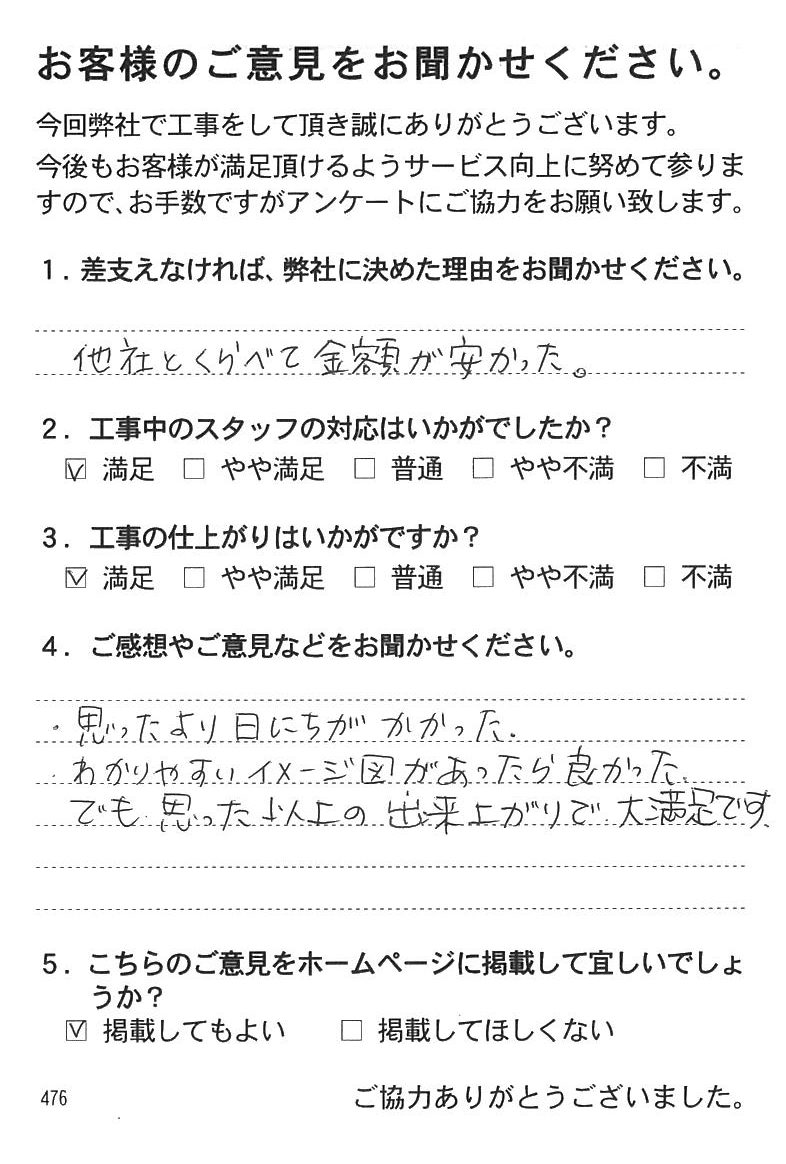 お客様のご意見をお聞かせください。
今回弊社で工事をして頂き誠にありがとうございます。
今後もお客様が満足頂けるようサービス向上に努めて参りま
すので、お手数ですがアンケートにご協力をお願い致します。
1. 差支えなければ、弊社に決めた理由をお聞かせください。
他社とくらべて金額が安かった。
2. 工事中のスタッフの対応はいかがでしたか?
☑ 満足 □ やや満足 □ 普通 □ やや不満 □ 不満
3. 工事の仕上がりはいかがですか?
☑ 満足 □ やや満足 □ 普通 □ やや不満 □ 不満
4. ご感想やご意見などをお聞かせください。
・思ったより日にちがかかった.
・わかりやすいイメージ図があったら良かった.
でも.思った以上の出来上がりで.大満足です.
5. こちらのご意見をホームページに掲載して宜しいでしょ
うか?
☑ 掲載してもよい □ 掲載してほしくない
476 ご協力ありがとうございました。